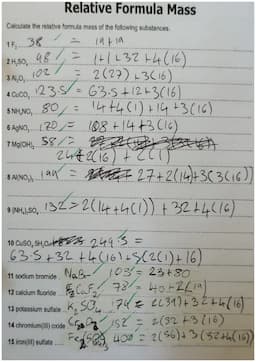 Relative Formula Mass
Calculate the relative formula mass of the following substances.
1 F₂ 38 = 19+19
2 H₂SO₄ 98 = 1+1+32+4(16)
3 Al₂O₃ 102 = 2(27)+3(16)
4 CuCO₃ 123.5 = 63.5+12+3(16)
5 NH₄NO₃ 80 = 14+4(1)+14+3(16)
6 AgNO₃ 170 = 108+14+3(16)
7 Mg(OH)₂ 58 =
24+2(16)+2(1)
8 Al(NO₃)₃ = 27+2(14)+3(3(16))
9 (NH₄)₂SO₄ 132 = 2(14+4(1))+32+4(16)
10 CuSO₄.5H₂O 249.5 =
63.5+32+4(16)+5(2(1)+16)
11 sodium bromide NaBr 103 = 23+80
12 calcium fluoride CaF₂ 78 = 40+2(19)
13 potassium sulfate K₂SO₄ 174 = 2(39)+32+4(16)
14 chromium(III) oxide 152 = 2(52)+3(16)
15 iron(III) sulfate 400 = 2(56)+3(32+4(16))